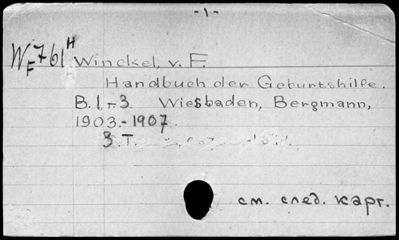 - 1 -
W_F 761 H Winckel, v. F.
Handbuch der Geburtshilfe.
B. 1 - 3 Wiesbaden, Bergmann,
1903.-1907.
3. T.
см. след. карт.